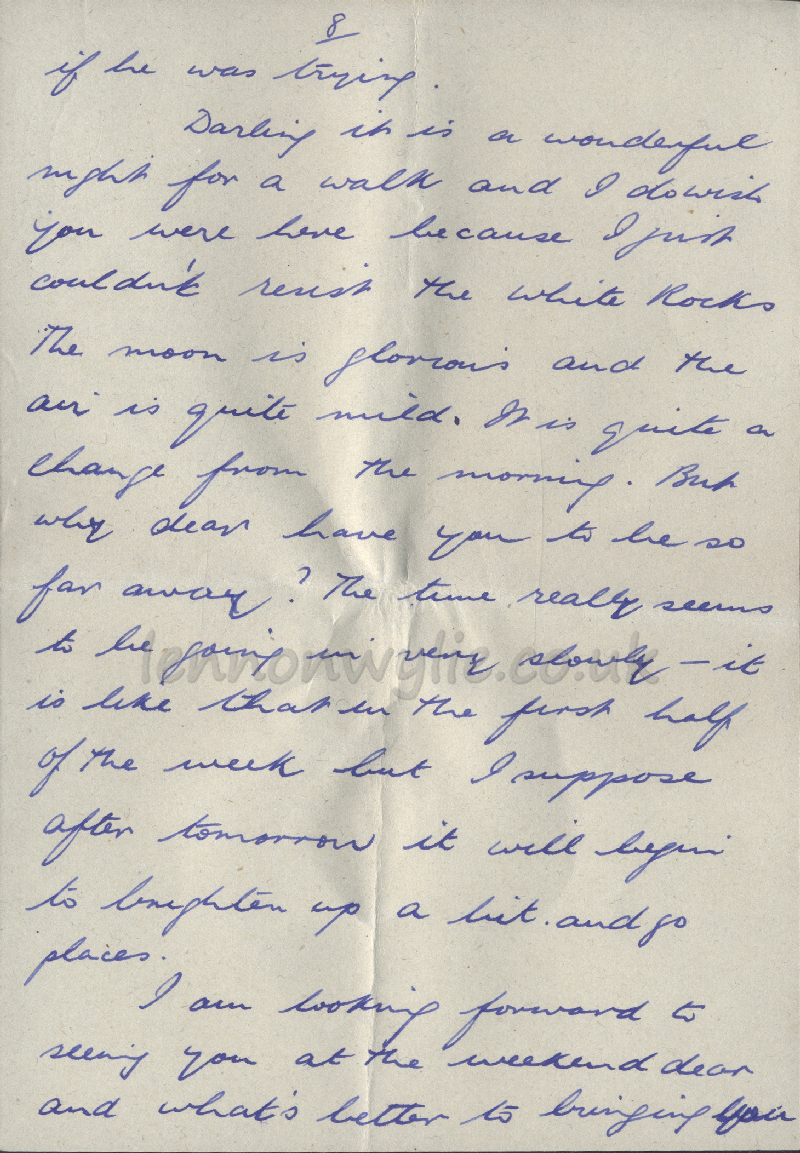 8
if he was trying.
Darling it is a wonderful
night for a walk and I do wish
you were here because I just
couldn't resist the White Rocks
The moon is glorious and the
air is quite mild. It is quite a
change from the morning. But
why dear have you to be so
far away? The time really seems
to be going in very slowly – it
lennonwylie.co.uk
is like that in the first half
of the week but I suppose
after tomorrow it will begin
to brighten up a bit. and go
places.
I am looking forward to
seeing you at the weekend dear
and what's better to bringing you